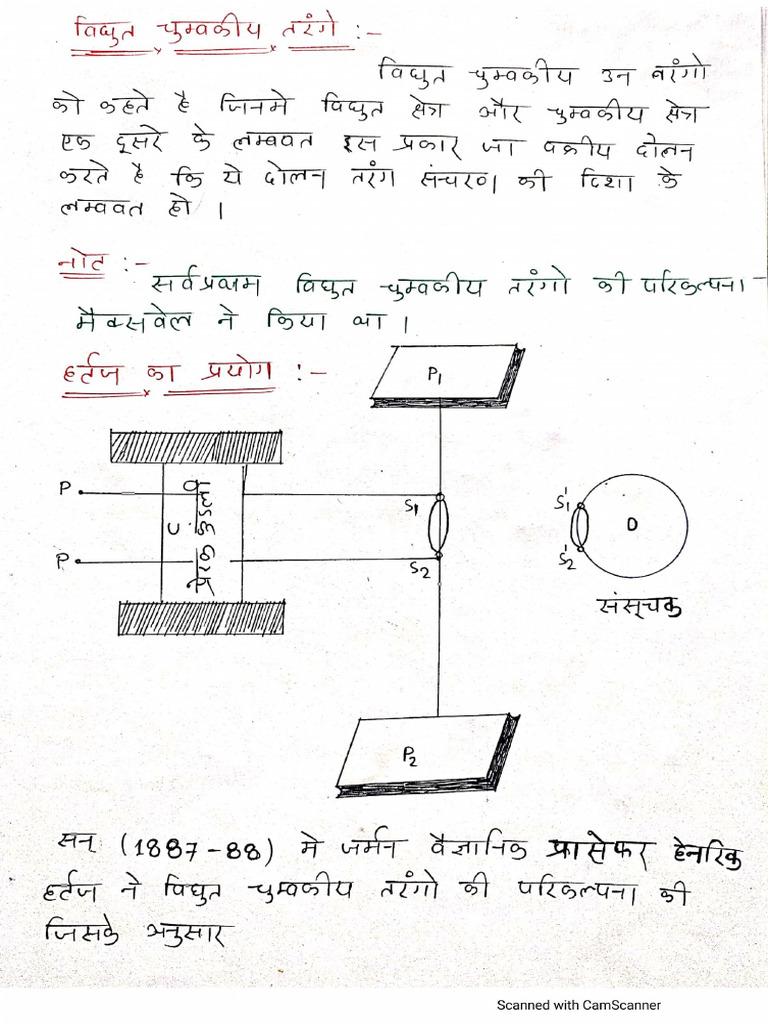 विद्युत चुम्वकीय तरंगे :-
विद्युत चुम्वकीय उन तरंगो
को कहते है जिनमे विद्युत क्षेत्र और चुम्वकीय क्षेत्र
एक दूसरे के लम्ववत इस प्रकार जा वकीय दोलन
करते है कि ये दोलन तरंग संचरण की दिशा के
लम्ववत हो ।
नोट :-
सर्वप्रथम विद्युत चुम्वकीय तरंगो की परिकल्पना-
मैक्सवेल ने किया था ।
हर्टज का प्रयोग :-
P1
P
S1
S'1
D
P
S2
S'2
संसूचक
P2
सन् (1887-88) मे जर्मन वैज्ञानिक प्रासेफर हेनरिक
हर्टज ने विद्युत चुम्वकीय तरंगो की परिकल्पना की
जिसके अनुसार
Scanned with CamScanner